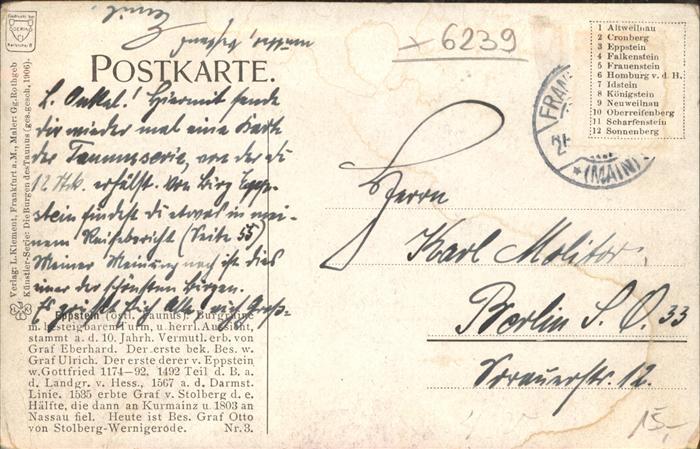 POSTKARTE.
× 6239
1 Altweilnau
2 Cronberg
3 Eppstein
4 Falkenstein
5 Frauenstein
6 Homburg v. d. H.
7 Idstein
8 Königstein
9 Neuweilnau
10 Oberreifenberg
11 Scharfenstein
12 Sonnenberg
FRAN
* (MAIN)
L. Onkel! Hiermit sende
dir wieder mal eine Karte
der Taunusserie, von der du
12 Stk. erhälst. Von Burg Epp-
stein findest du etwas in mei-
nem Reisebericht (Seite 55)
Meiner Meinung nach ist dies
eine der schönsten Burgen.
Es grüßt Dich
Herrn
Karl Molitor,
Berlin S. O. 33
Sorauerstr. 12.
Eppstein (östl. Taunus). Burgruine
m. besteigbarem Turm, u. herrl. Aussicht,
stammt a. d. 10. Jahrh. Vermutl. erb. von
Graf Eberhard. Der erste bek. Bes. w.
Graf Ulrich. Der erste derer v. Eppstein
w. Gottfried 1174–92. 1492 Teil d. B. a.
d. Landgr. v. Hess., 1567 a. d. Darmst.
Linie. 1535 erbte Graf v. Stolberg d. e.
Hälfte, die dann an Kurmainz u. 1803 an
Nassau fiel. Heute ist Bes. Graf Otto
von Stolberg-Wernigerode. Nr. 3.
15,-
Verlag: L. Klement, Frankfurt a. M., Maler: Gg. Rothgeb
Künstler-Serie: Die Burgen des Taunus (ges. gesch. 1906).